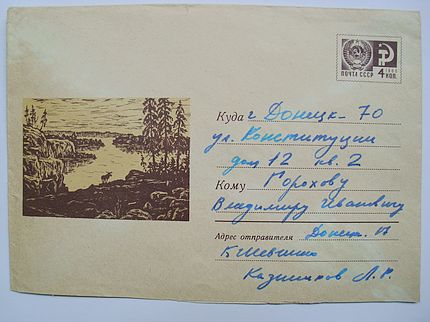 1966
ПОЧТА СССР 4 КОП.
Куда г Донецк-70
ул. Конституции
дом 12 кв. 2
Кому Горохову
Владимиру Ивановичу
Адрес отправителя Донецк
Л.Р.